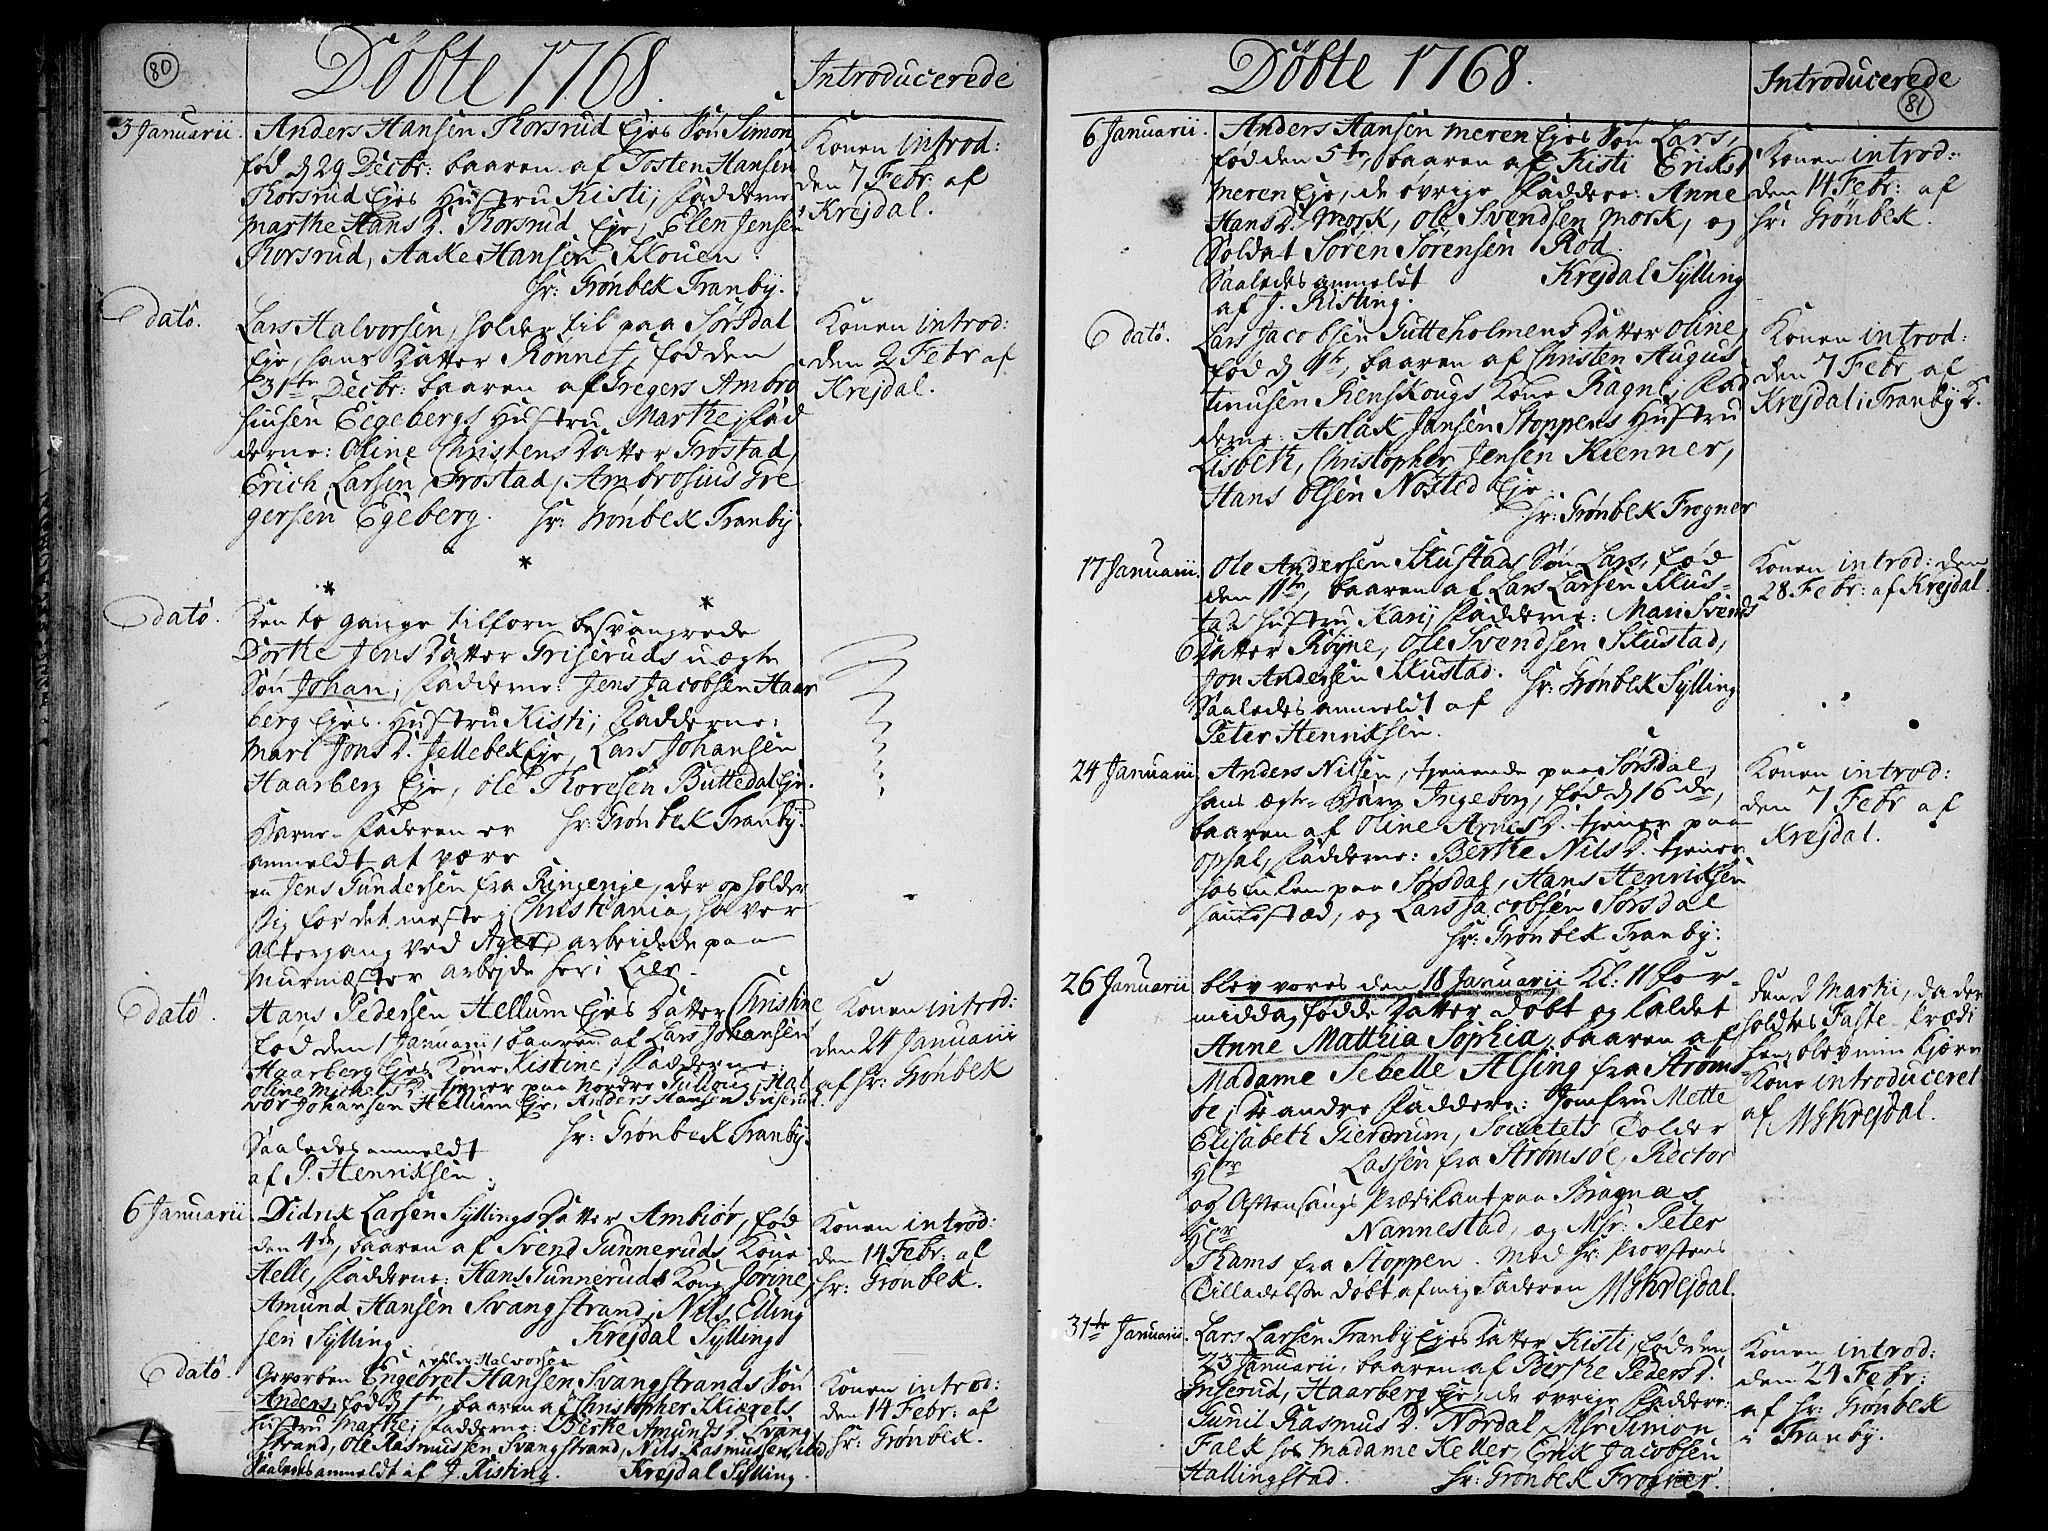 80
Döbte 1768.
Introducerede
3 Januarii.
Anders Hansen Korsrud Ejes Søn Simon
fød d 29 Decbr: baaren af Tosten Hansen
Korsrud Ejes Hustru Kisti; Fadderne
Marthe Hans D. Korsrud Eje, Elen Jensen
Korsrud, Aake Hansen Klouen.
hr: Grønbek Tranby.
Konen introd:
den 7 Febr: af
Krejdal.
dato.
Lars Halvorsen, holder til paa Sørsdal
Eje, hans Datter Rønnet, fød den
31te Decbr: baaren af Gregers Ambro
siusen Eegebergs Hustru Marthe; Fad
derne: Oline Christens Datter Grøstad,
Erich Larsen Grøstad, Ambrosius Gre
gersen Egeberg. hr: Grønbek Tranby.
Konen introd:
den 2 Febr af
Krejdal.
dato.
Den to gange tilforn besvangrede
Dorthe Jens Datter Griseruds uægte
Søn Johan; Fadderne: Jens Jacobsen Haar
berg Ejes Hustru Kisti; Fadderne:
Mari Jons D. Jellebek Eje, Lars Johansen
Haarberg Eje, Ole Thoresen Buttedal Eje.
Barne-Faderen er hr: Grønbek Tranby.
anmeldt at være
en Jens Gundersen fra Ringerige, der opholder
sig for det meste i Christiania, haver
Altergang ved Ager, arbeidede paa
Murmæster arbejde her i Lier.
dato.
Hans Pedersen Hellum Ejes Datter Christine
fød den 1 Januarii, baaren af Lars Johansen
Haarberg Ejes Kone Kistine; Fadderne:
Oline Michels D. tjener paa Nordre Gulloug, Hal
vor Johansen Hellum Eje, Anders Hansen Griserud.
hr: Grønbek Tranby.
Saaledes anmeldt
af P. Henriksen.
Konen introd:
den 24 Januarii
af hr: Grønbek
6 Januarii
Didrik Larsen Syllings Datter Ambiør, fød
den 4de, baaren af Svend Gunneruds Kone
Helle, Fadderne: Hans Gunneruds Kone Jorine
Amund Hansen Svangstrand, Nils Elling
sen Sylling. Krejdal Sylling
Konen introd:
den 14 Febr: af
hr: Grønbek.
dato.
eller Halvorsen
Gevorben Engebret Hansen Svangstrands Søn
Anders, fød d 1te, baaren af Christopher Skiærets
Hustru Marthe; Fadderne: Berthe Amunds D. Svang
strand, Ole Rasmussen Svangstrand, Nils Rasmussen
Saaledes anmeldt af J. Risting. Krejdal Sylling.
Konen introd:
den 14 Febr: af
hr: Grønbek.
Döbte 1768.
Introducerede
81
6 Januarii.
Anders Hansen Meren Ejes Søn Lars,
fød den 5te, baaren af Kisti Eriks D
Meren Eje, de øvrige Faddere: Anne
Hans D. Mork, Ole Svendsen Mork, og
Soldat Sören Sörensen Röd.
Saaledes anmeldt Krejdal Sylling
af J. Risting.
Konen introd:
den 14 Febr: af
hr: Grönbek.
dato.
Lars Jacobsen Tutteholmens Datter Oline,
fød d 1te, baaren af Christen Augus
tinusen Renskougs Kone Ragnil; Fad
derne: Aslak Jansen Stoppens Hustru
Lisbeth, Christopher Jensen Kienner,
Hans Olsen Nøsted Eje.
hr: Grønbek Frogner
Konen introd:
den 7 Febr af
Krejdal i Tranby K.
17 Januarii.
Ole Andersen Skustads Søn Lars, fød
den 11te, baaren af Lars Larsen Skus-
tad Hustru Kari; Fadderne: Mari Svends
Datter Røyne, Ole Svendsen Skustad,
Jon Andersen Skustad. hr: Grønbek Sylling
Saaledes anmeldt af
Peter Henriksen.
Konen introd: den
28 Febr: af Krejdal.
24 Januarii
Anders Nilsen, tjenende paa Sørsdal,
hans ægte Barn Ingeborg, fød d 16de,
baaren af Oline Arnes D. tjener paa
Opsal, Fadderne: Berthe Nils D. tjener
hos Enken paa Sørsdal, Hans Henriksen
sammestæd, og Lars Jacobsen Sørsdal
hr: Grønbek Tranby.
Konen introd:
den 7 Febr af
Krejdal.
26 Januarii
blev vores den 18 Januarii Kl: 11 for-
middag fødde Datter døbt og kaldet
Anne Matthia Sophia, baaren af
Madame Sebelle Alsing fra Strøms-
øe; De andre Faddere: Jomfru Mette
Elisabeth Gierdrum, Societets Tolder
Her Lassen fra Strømsøe, Rector
og Aftensangs Prædikant paa Bragnæs
Her Nannestad, og Msr: Peter
Thams fra Stoppen. Med hr: Provstens
Tilladelse døbt af mig Faderen MS Krejdal.
Den d Martii, da der
holdtes Faste-Prædi
ken, blev min kjære
Kone introduceret
af MS Krejdal.
31te Januarii.
Lars Larsen Tranby Ejes Datter Kisti, fød den
23 Januarii, baaren af Berthe Peders D.
Griserud, Haarberg Eje, de øvrige Faddere:
Gunil Rasmus D. Nordal, Msr Simon
Falk hos Madame Keller, Erik Jacobsen
Hallingstad. hr: Grønbek Frogner.
Konen introd:
den 24 Febr:
af hr: Grønbek
i Tranby.